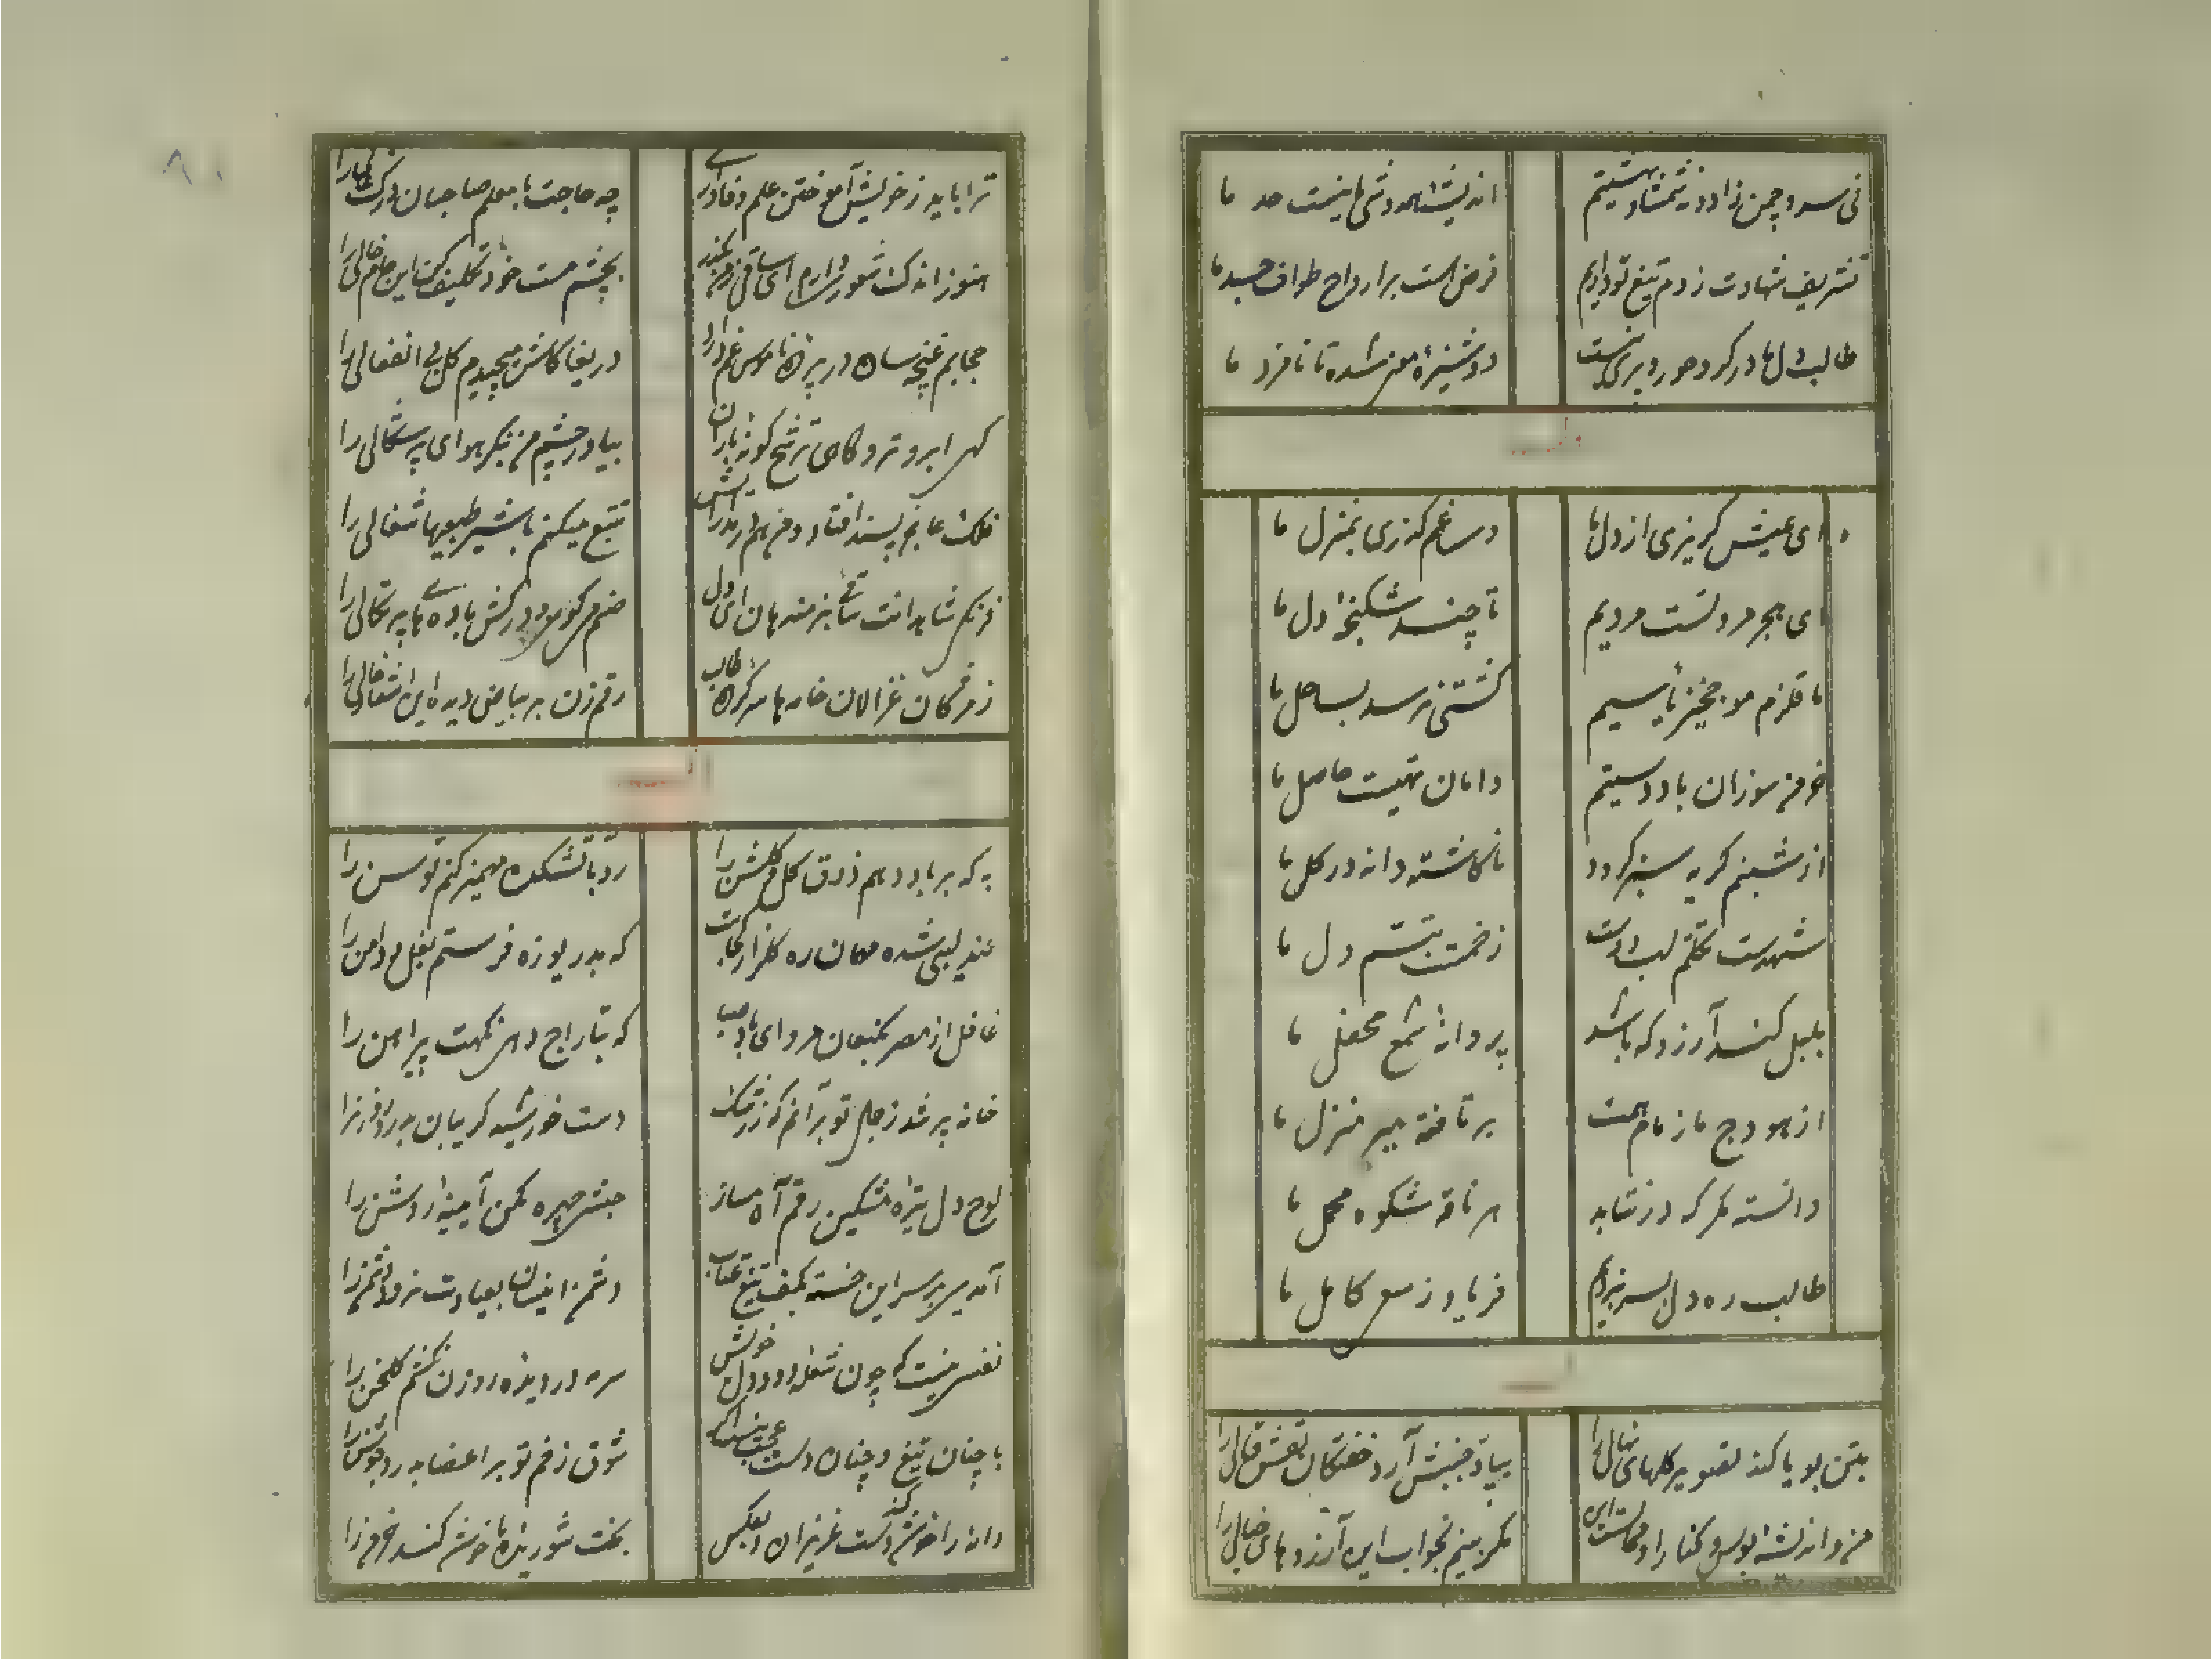 نی سرو چمن زاد و نه شمشاد بهشتیم
اندیشهٔ همدوشی ما نیست حد ما
تشریف شهادت ز دم تیغ تو داریم
فرض است بر ارواح طواف جسد ما
طالب دل ما در گرو حور و پری نیست
دوشیزهٔ معنی شده تا نامزد ما
ای عیش گریزی از دل ما
وی غم گذری بمنزل ما
ای هجر مروتست مردیم
تا چند شکنجهٔ دل ما
ما قلزم موج خیز یأسیم
کشتی نرسد بساحل ما
خرمن سوزان باد دستیم
دامان تهیست حاصل ما
از شبنم گریه سبز گردد
ناکاشته دانه در گل ما
شهدست تکلم لب دوست
زخمست تبسم دل ما
بلبل کند آرزو که باشد
پروانهٔ شمع محفل ما
از هودج ما زمام همت
برتافته میر منزل ما
دانسته مگر که در نتابد
هر ناقه شکوه محمل ما
طالب ره دل بسر نبردیم
فریاد ز سعی کاهل ما
بتن بویا کند تصویر گلهای نهالی را
بپا در جنبش آرد خفتگان نقش قالی را
من و اندیشهٔ بوس و کنار او محالست این
مگر بینم بخواب این آرزوهای خیالی را
ترا باید ز خویش آموختن علم وفاداری
چه حاجت با معلم صاحبان درک عالی را
هنوز اندک شعوری دارم ای ساقی ز من مگذر
بچشم مست خود تکلیف کن این جام خالی را
حجابم غنچه سان در پردهٔ ناموس غم دارد
دریغا کاش میچیدم گل بی انفعالی را
گهی ابر و تر و گاهی ترشح گونه باران
بیا در چشم من بنگر هوای پرشکالی را
فلک عاجز پسند افتاد و من هم در برابرش
تتبع میکنم با شیر طبعیها شغالی را
فرنگی شاهدانت ساقی بزمند هان ای دل
صنم میگوی و در کش بادهٔ پرتگالی را
ز مژگان غزالان خامه ها سر کرده طالب
رقم زن بر بیاض دیده این اشعار حالی را
به که بر باد دهم ذوق گل و گلشن را
رو بآتشکده مهمیز کنم توسن را
عندلیبی شده مهمان ره گلزار کجاست
که بدریوزه فرستم بغل و دامن را
غافل از مصر بکنعان مرو ای باد صبا
که بتاراج دهی نکهت پیراهن را
خانه پر شد ز جمال تو برآنم که ز رشک
دست خورشید گریبان بدرد روزن را
لوح دل تیره مشکین رقم آه مساز
حبشی چهره مکن آیینهٔ روشن را
آمدی بر سر این خسته بکف تیغ عتاب
دشمن اینسان بعیادت نرود دشمن را
نفسی نیست که چون شعله و دود دل خویش
سرمه در دیدهٔ روزن نکشم گلخن را
با چنان تیغ و چنان دست عجب نیست اگر
شوق زخم تو بر اعضا بدرد جوشن را
دانه را خوشه کند دست عزیزان و بعکس
بخت شوریدهٔ ما خوشه کند خرمن را